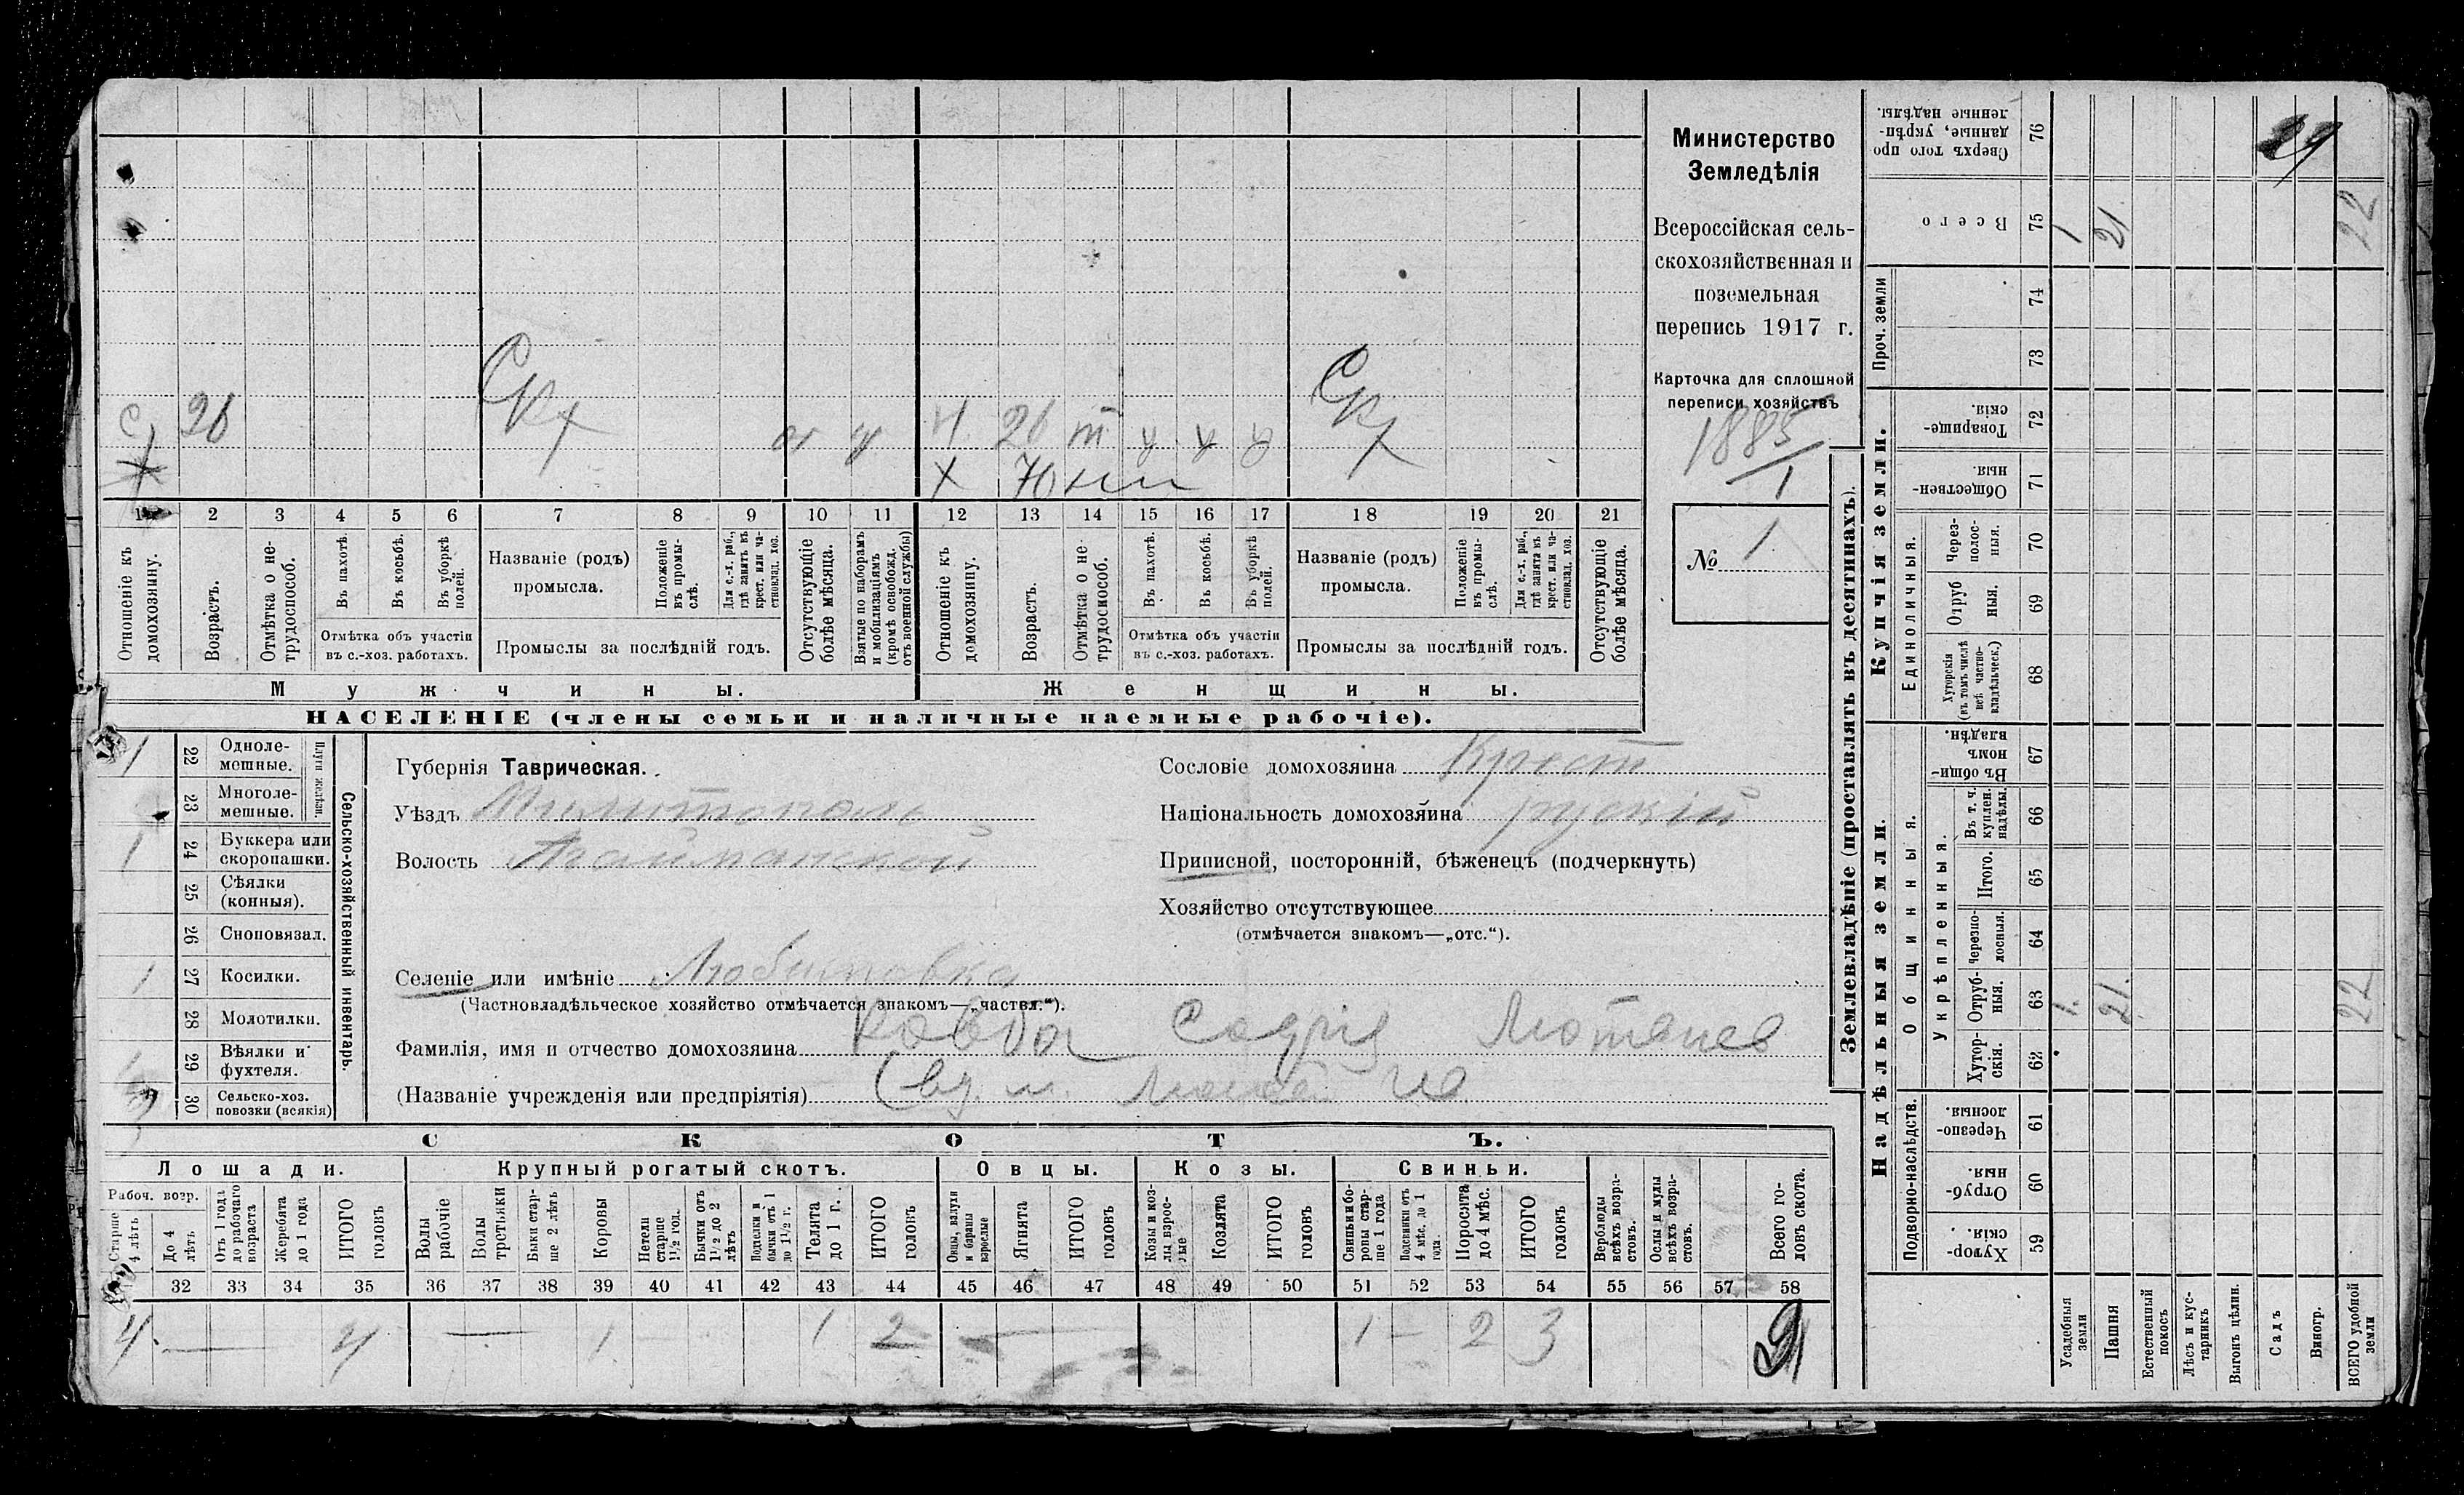 Министерство
Земледѣлія
Всероссійская сель-
скохозяйственная и
поземельная
перепись 1917 г.
Карточка для сплошной
переписи хозяйствъ
1885/1
№ 1
С 26 Скх от у Н 26 т у у у Скх
Х Х 70 нт
1 2 3 4 5 6 7 8 9 10 11 12 13 14 15 16 17 18 19 20 21
Отношеніе къ домохозяину.
Возрастъ.
Отмѣтка о не-трудоспособ.
Въ пахотѣ.
Въ косьбѣ.
Въ уборкѣ полей.
Отмѣтка объ участіи
въ с.-хоз. работахъ.
Названіе (родъ)
промысла.
Положеніе въ промы-слѣ.
Для с.-х. раб., гдѣ занятъ въ крест. или ча-стновлад. хоз.
Промыслы за послѣдній годъ.
Отсутствующіе болѣе мѣсяца.
Взятые по наборамъ и мобилизаціямъ (кромѣ освобожд. отъ военной службы)
Отношеніе къ домохозяину.
Возрастъ.
Отмѣтка о не-трудоспособ.
Въ пахотѣ.
Въ косьбѣ.
Въ уборкѣ полей.
Отмѣтка объ участіи
въ с.-хоз. работахъ.
Названіе (родъ)
промысла.
Положеніе въ промы-слѣ.
Для с.-х. раб., гдѣ занятъ въ крест. или ча-стновлад. хоз.
Промыслы за послѣдній годъ.
Отсутствующіе болѣе мѣсяца.
Мужчины.
Женщины.
НАСЕЛЕНІЕ (члены семьи и наличные наемные рабочіе).
Сельско-хозяйственный инвентарь.
Плуги желѣзн.
1 22 Одноле-мешные.
23 Многоле-мешные.
1 24 Буккера или скоропашки.
25 Сѣялки (конныя).
26 Сноповязал.
1 27 Косилки.
28 Молотилки.
29 Вѣялки и фухтеля.
30 Сельско-хоз. повозки (всякія)
Губернія Таврическая.
Уѣздъ Милитополь
Волость Агайманской
Селеніе или имѣніе Любимовка
(Частновладѣльческое хозяйство отмѣчается знакомъ—„частвл.“).
Фамилія, имя и отчество домохозяина
(Названіе учрежденія или предпріятія)
Сословіе домохозяина Крест
Національность домохозяина рускій
Приписной, посторонній, бѣженецъ (подчеркнуть)
Хозяйство отсутствующее
(отмѣчается знакомъ—„отс.“).
СКОТЪ.
Лошади.
Крупный рогатый скотъ.
Овцы.
Козы.
Свиньи.
Рабоч. возр.
Старше 4 лѣтъ
До 4 лѣтъ
Отъ 1 года до рабочаго возраста
Жеребята до 1 года
ИТОГО головъ
Волы рабочіе
Волы третьяки
Быки стар-ше 2 лѣтъ
Коровы
Нетели старше 1½ год.
Бычки отъ 1½ до 2 лѣтъ
Подтелки и бычки отъ 1 до 1½ г.
Телята до 1 г.
ИТОГО головъ
Овцы, валухи и бараны взрослые
Ягнята
ИТОГО головъ
Козы и коз-лы взрос-лые
Козлята
ИТОГО головъ
Свиньи и бо-ровы стар-ше 1 года
Подсвинки отъ 4 мѣс. до 1 года.
Поросята до 4 мѣс.
ИТОГО головъ
Верблюды всѣхъ возра-стовъ.
Ослы и мулы всѣхъ возра-стовъ.
Всего го-ловъ скота.
32 33 34 35 36 37 38 39 40 41 42 43 44 45 46 47 48 49 50 51 52 53 54 55 56 57 58
4 — 4 — 1 — 1 2 — 1 — 2 3 9
Землевладѣніе (проставлять въ десятинахъ).
Надѣльныя земли.
Купчія земли.
Проч. земли
Подворно-наслѣдств.
Общинныя.
Укрѣпленныя.
Единоличныя.
Хутор-скія. 59
Отруб-ныя. 60
Черезпо-лосныя. 61
Хутор-скія. 62
Отруб-ныя. 63
Черезпо-лосныя. 64
Итого. 65
Въ т. ч. куплен. надѣлы. 66
Въ общи-номъ владѣн. 67
Хуторскія (въ томъ числѣ всѣ частно-владѣльческ.) 68
Отруб ныя. 69
Через-полос-ныя. 70
Обществен-ныя. 71
Товарище-скія. 72
73
74
Всего 75
Сверхъ того про данные, укрѣп-ленные надѣлы. 76
Усадебныя земли
Пашня
Естественный покосъ
Лѣсъ и кус-тарникъ
Выгонъ цѣлин.
Садъ
Виногр.
ВСЕГО удобной земли
1. 21. 22
1 21 22